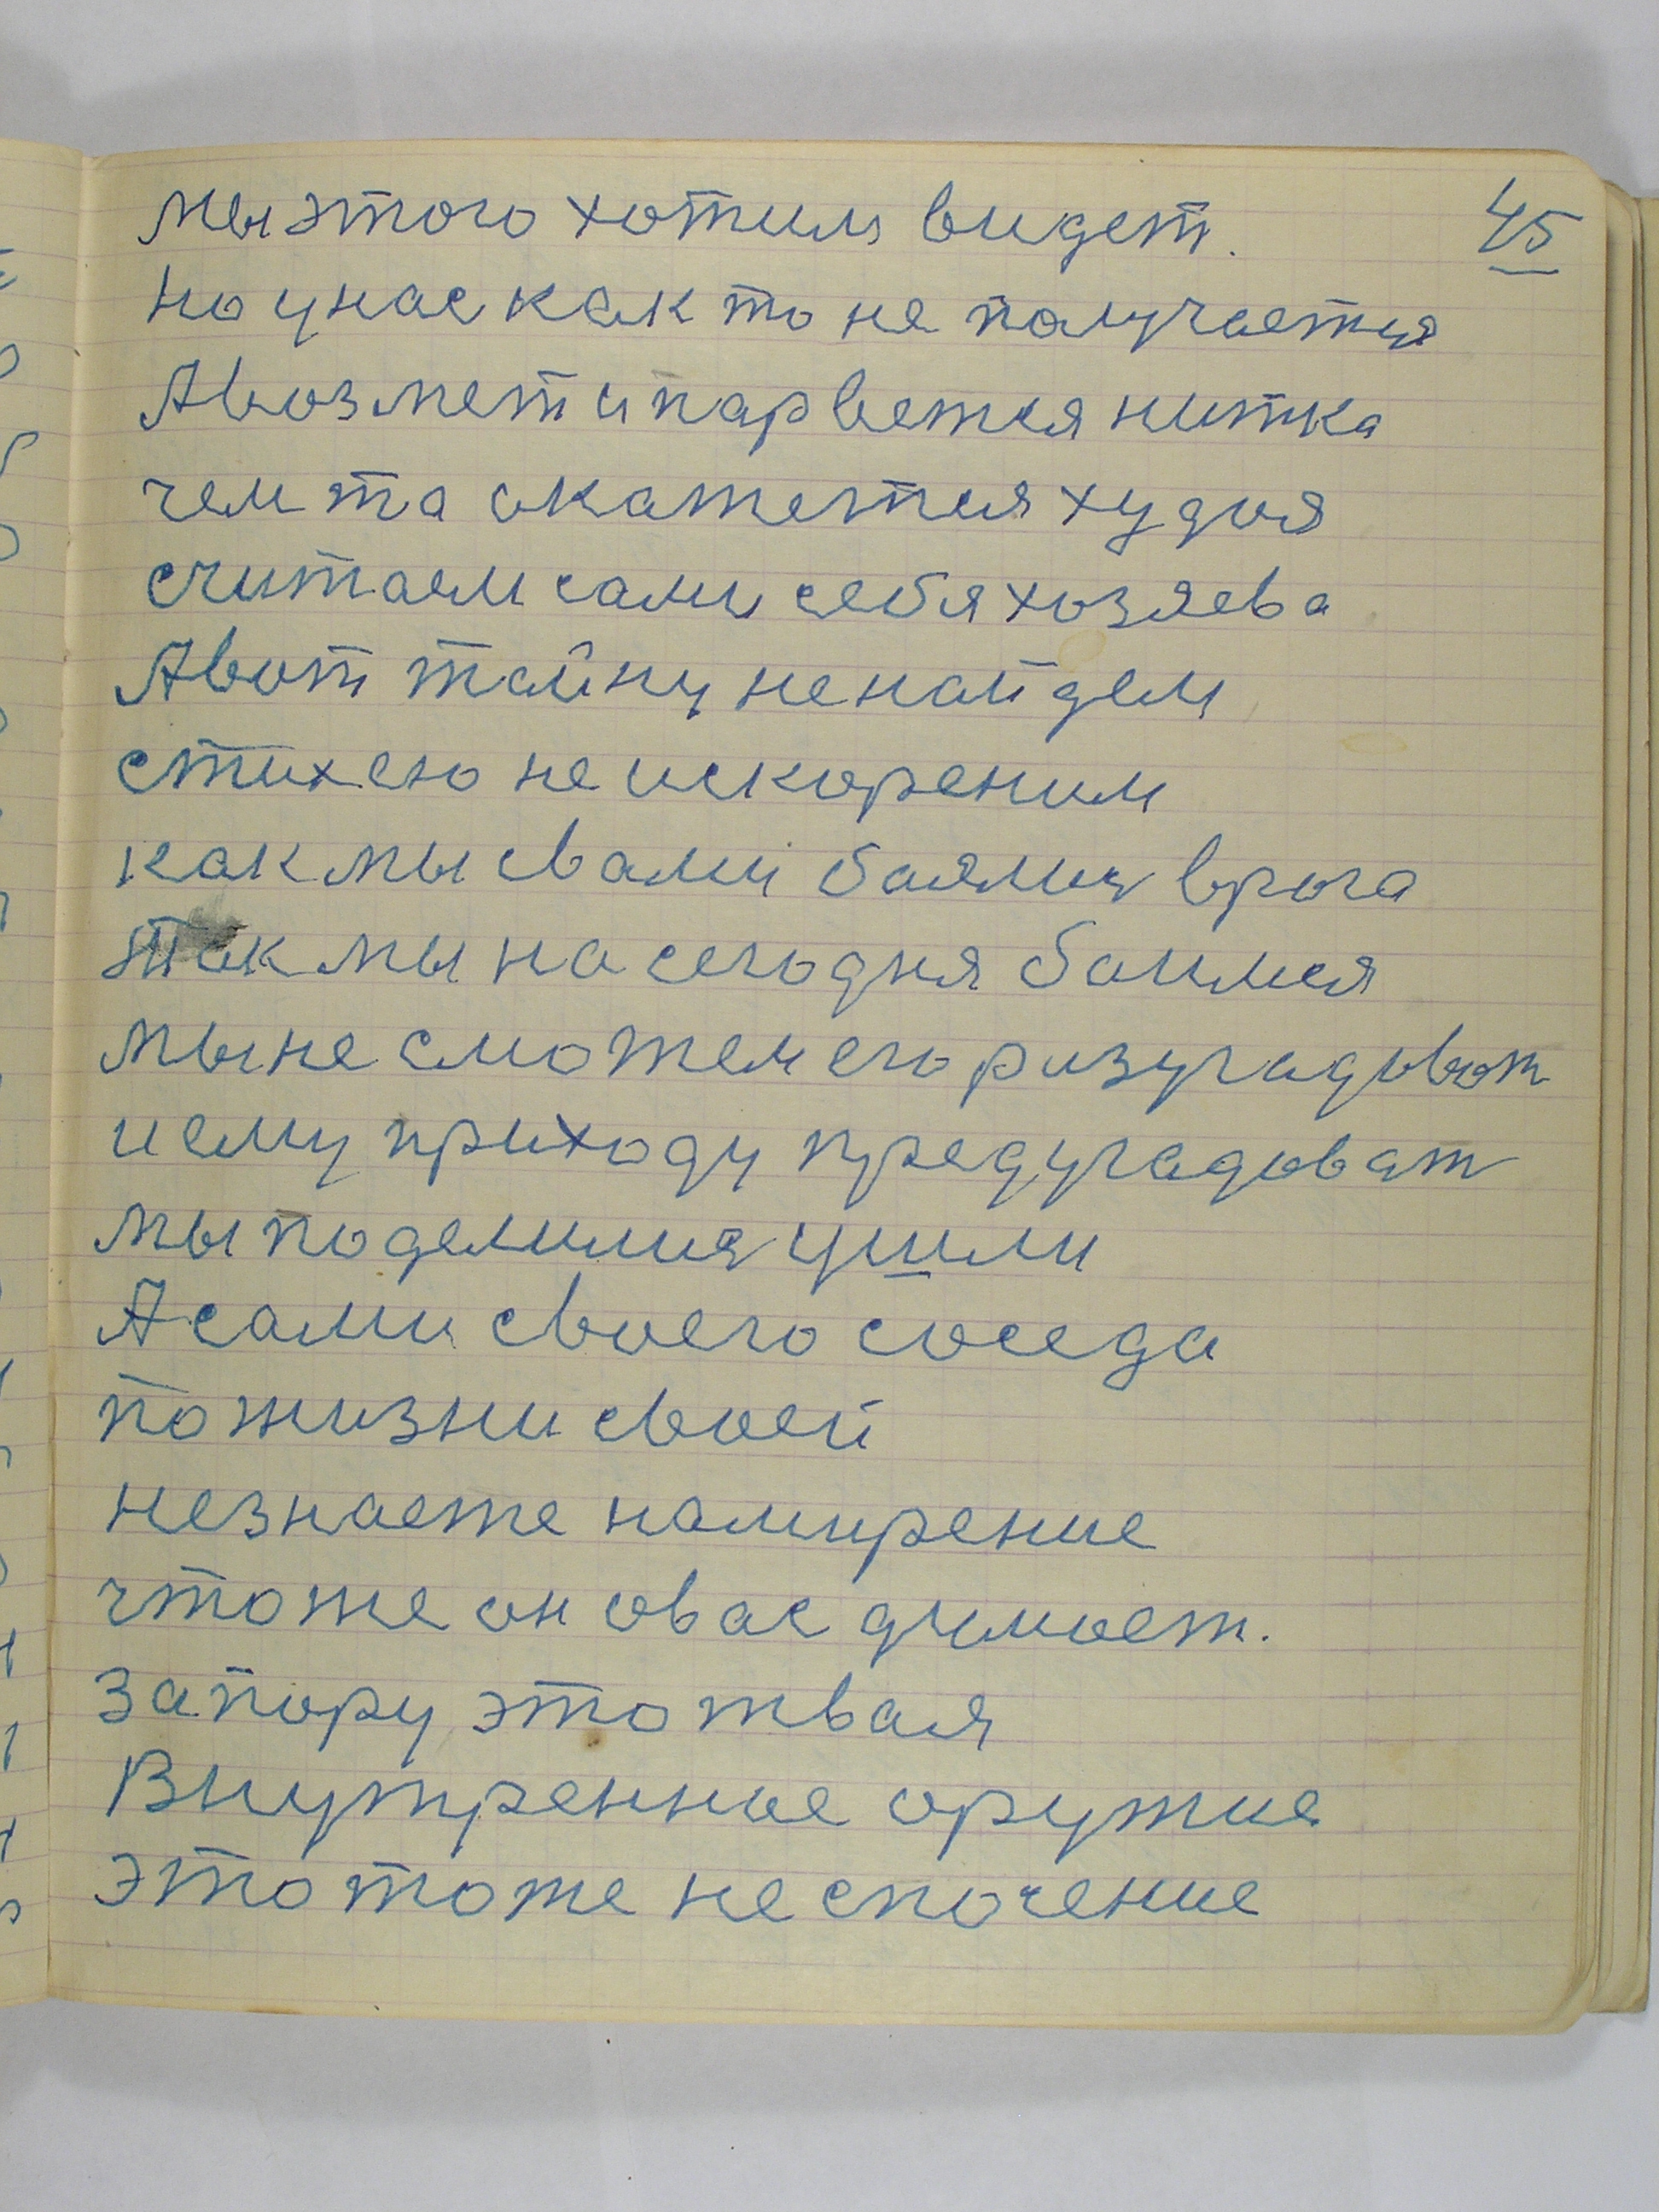 45
мы этого хотим видет.
но унас как то не получается
А возмет и парвется нитка
чем та окажется худоя
считаем сами себя хозяева
А вот тайну не найдем
стихею не искореним
как мы свами баялис врага
так мы на сегодня боимся
мы не сможем его разугадоват
и ему приходу предугадоват
мы поделилися ушли
А сами своего соседа
по жизни своей
незнаете намирение
что же он овас думает.
запору это твая
Внутренное оружие
это тоже не спочение